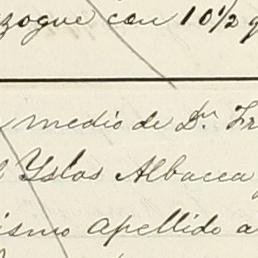 zogue con 10 1/2 q
medio de Dn. Fr
Yslas Albacea
ismo apellido a